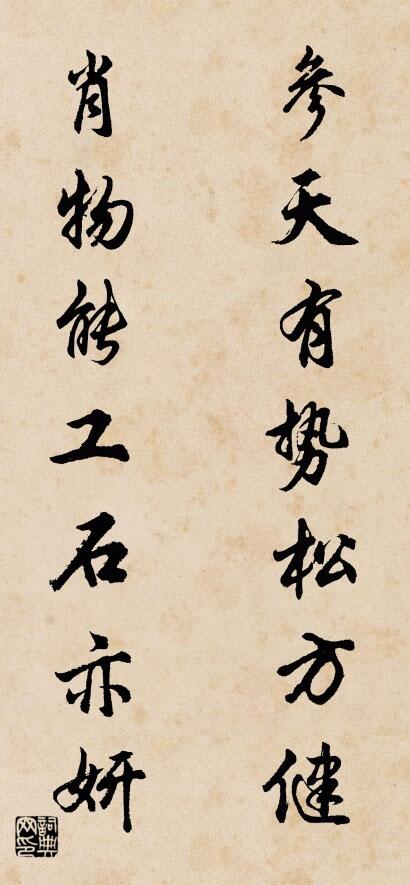 參天有势松方健
肖物能工石亦妍
詞典网印